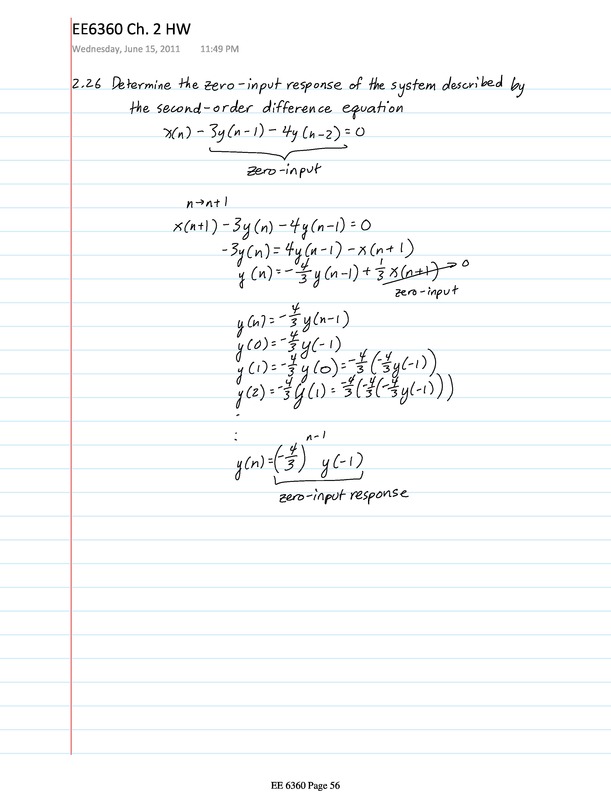 EE6360 Ch. 2 HW
Wednesday, June 15, 2011 11:49 PM
2.26 Determine the zero-input response of the system described by
the second-order difference equation
x(n) - 3y(n-1) - 4y(n-2) = 0
zero-input
n→n+1
x(n+1) - 3y(n) - 4y(n-1) = 0
-3y(n) = 4y(n-1) - x(n+1)
y(n) = -4/3 y(n-1) + 1/3 x(n+1) → 0
zero-input
y(n) = -4/3 y(n-1)
y(0) = -4/3 y(-1)
y(1) = -4/3 y(0) = -4/3 (-4/3 y(-1))
y(2) = -4/3 y(1) = -4/3 (-4/3 (-4/3 y(-1)))
.
:
y(n) = (-4/3)^{n-1} y(-1)
zero-input response
EE 6360 Page 56